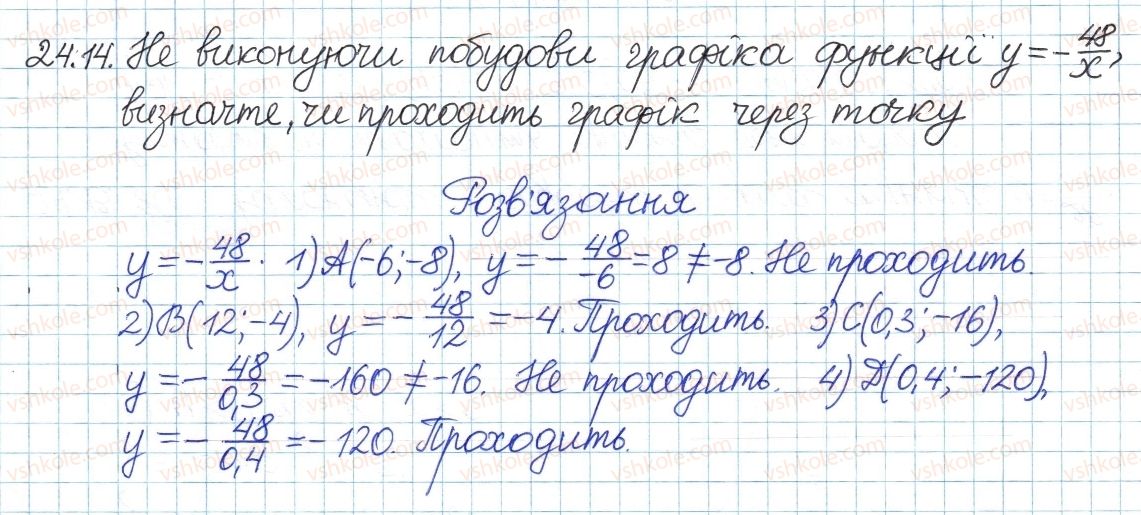 24.14. Не виконуючи побудови графіка функції y = -48/x,
визначте, чи проходить графік через точку
Розв'язання
y = -48/x. 1) A(-6; -8), y = -48/-6 = 8 ≠ -8. Не проходить.
2) B(12; -4), y = -48/12 = -4. Проходить. 3) C(0,3; -16),
y = -48/0,3 = -160 ≠ -16. Не проходить. 4) D(0,4; -120),
y = -48/0,4 = -120. Проходить.